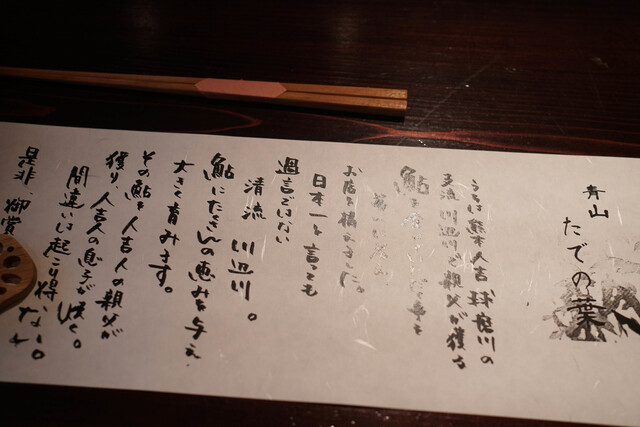 青山
たでの葉
うちは熊本人吉、球磨川の
支流 川辺川で親父が獲る
鮎を
お店を構えました。
日本一と言っても
過言でいない
清流 川辺川。
鮎にたくさんの恵みを与え、
大きく育みます。
その鮎を人吉人の親父が
獲り、人吉人の息子が焼く。
間違いは起こり得ない。
是非、御賞